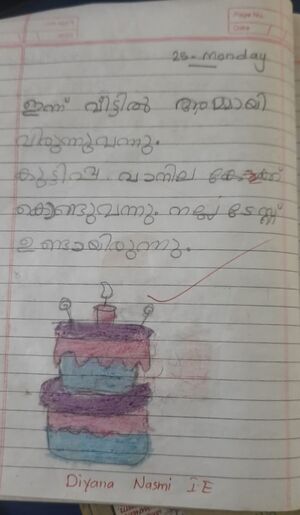 Page No.
Date
25- Monday
ഇന്ന് വീട്ടിൽ അമ്മായി
വിരുന്നുവന്നു.
വാനില
കൊണ്ടുവന്നു. നല്ല ടേസ്റ്റ്
ഉണ്ടായിരുന്നു.
Diyana Nasmi I E